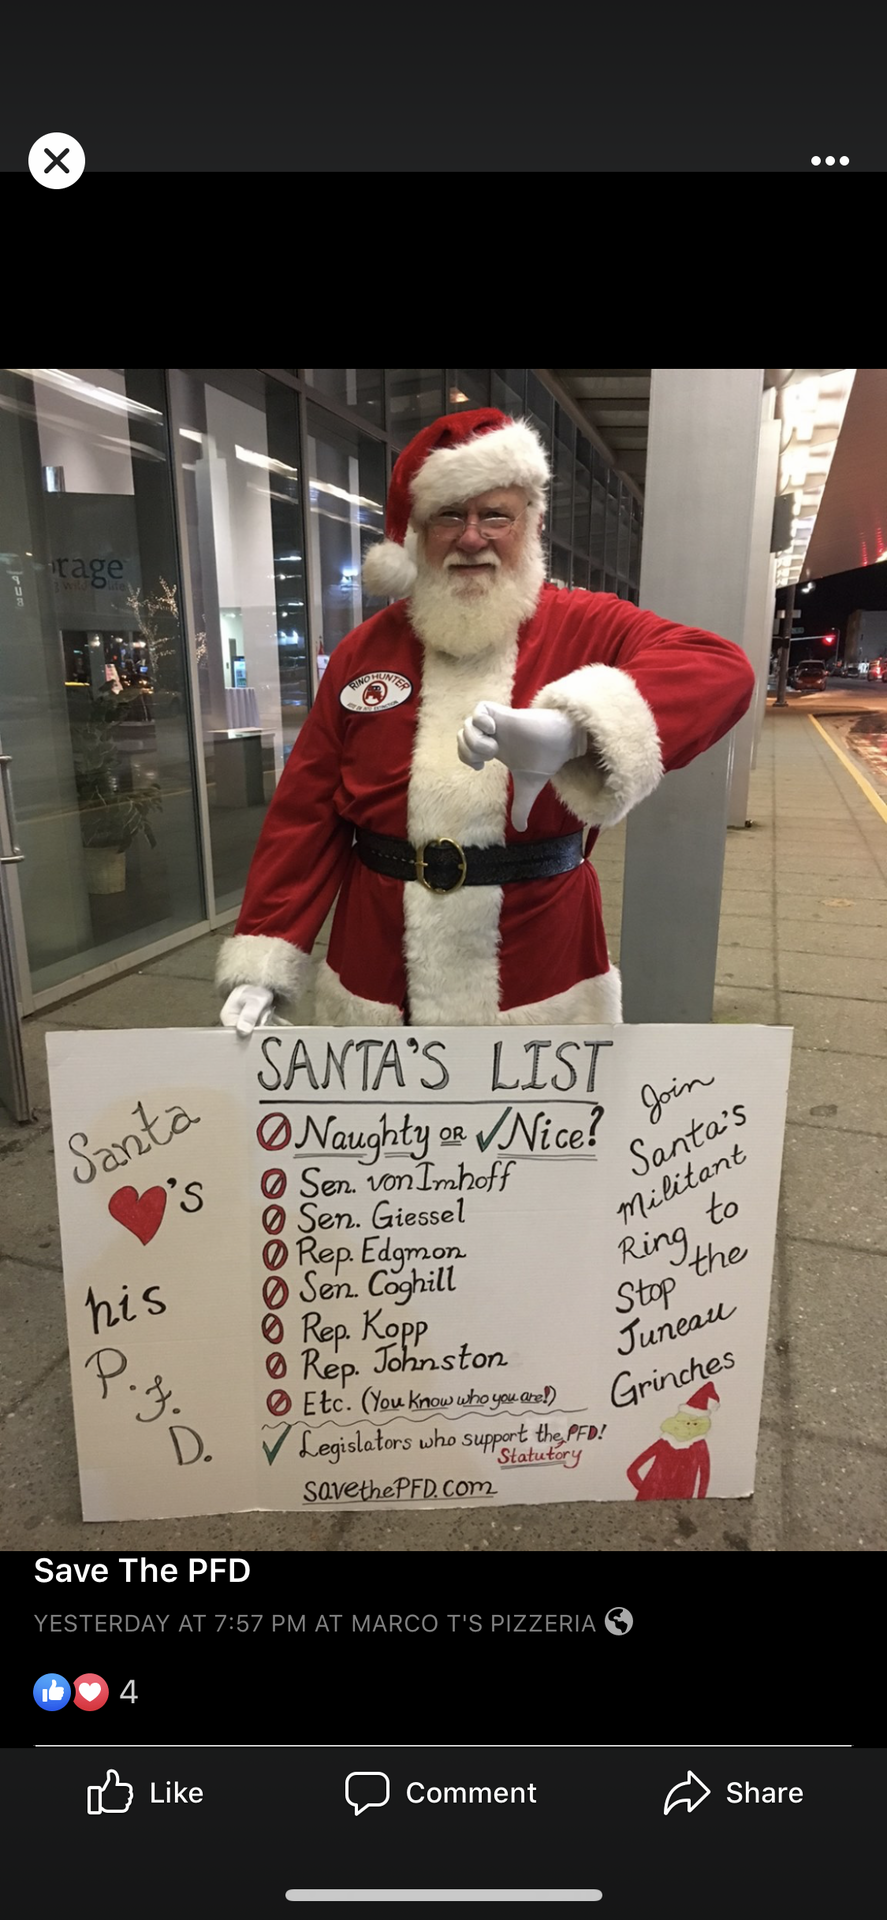 rage
RINO HUNTER
SANTA'S LIST
Naughty OR ✓Nice?
Sen. vonImhoff
Sen. Giessel
Rep. Edgmon
Sen. Coghill
Rep. Kopp
Rep. Johnston
Etc. (You Know who you are!)
✓ Legislators who support the PFD!
Statutory
savethePFD.com
Santa
♥'s
his
P.F.
D.
Join
Santa's
Militant
Ring to
Stop the
Juneau
Grinches
Save The PFD
YESTERDAY AT 7:57 PM AT MARCO T'S PIZZERIA
4
Like
Comment
Share